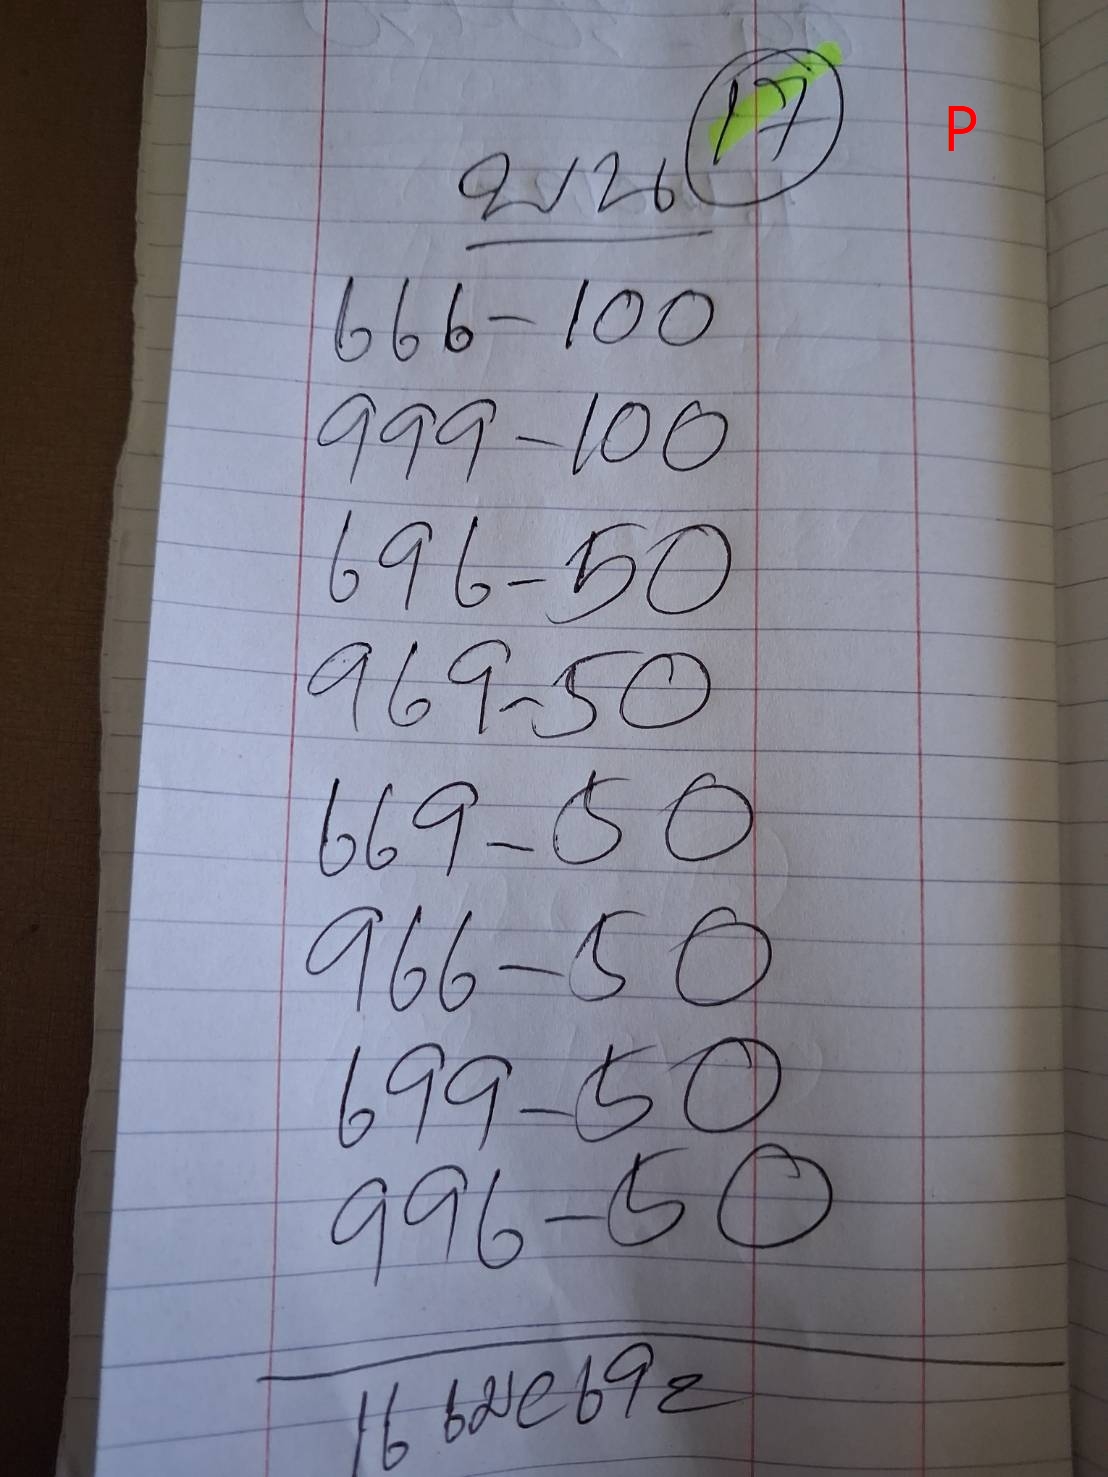 17
P
666-100
999-100
696-50
969-50
669-50
966-50
699-50
996-50